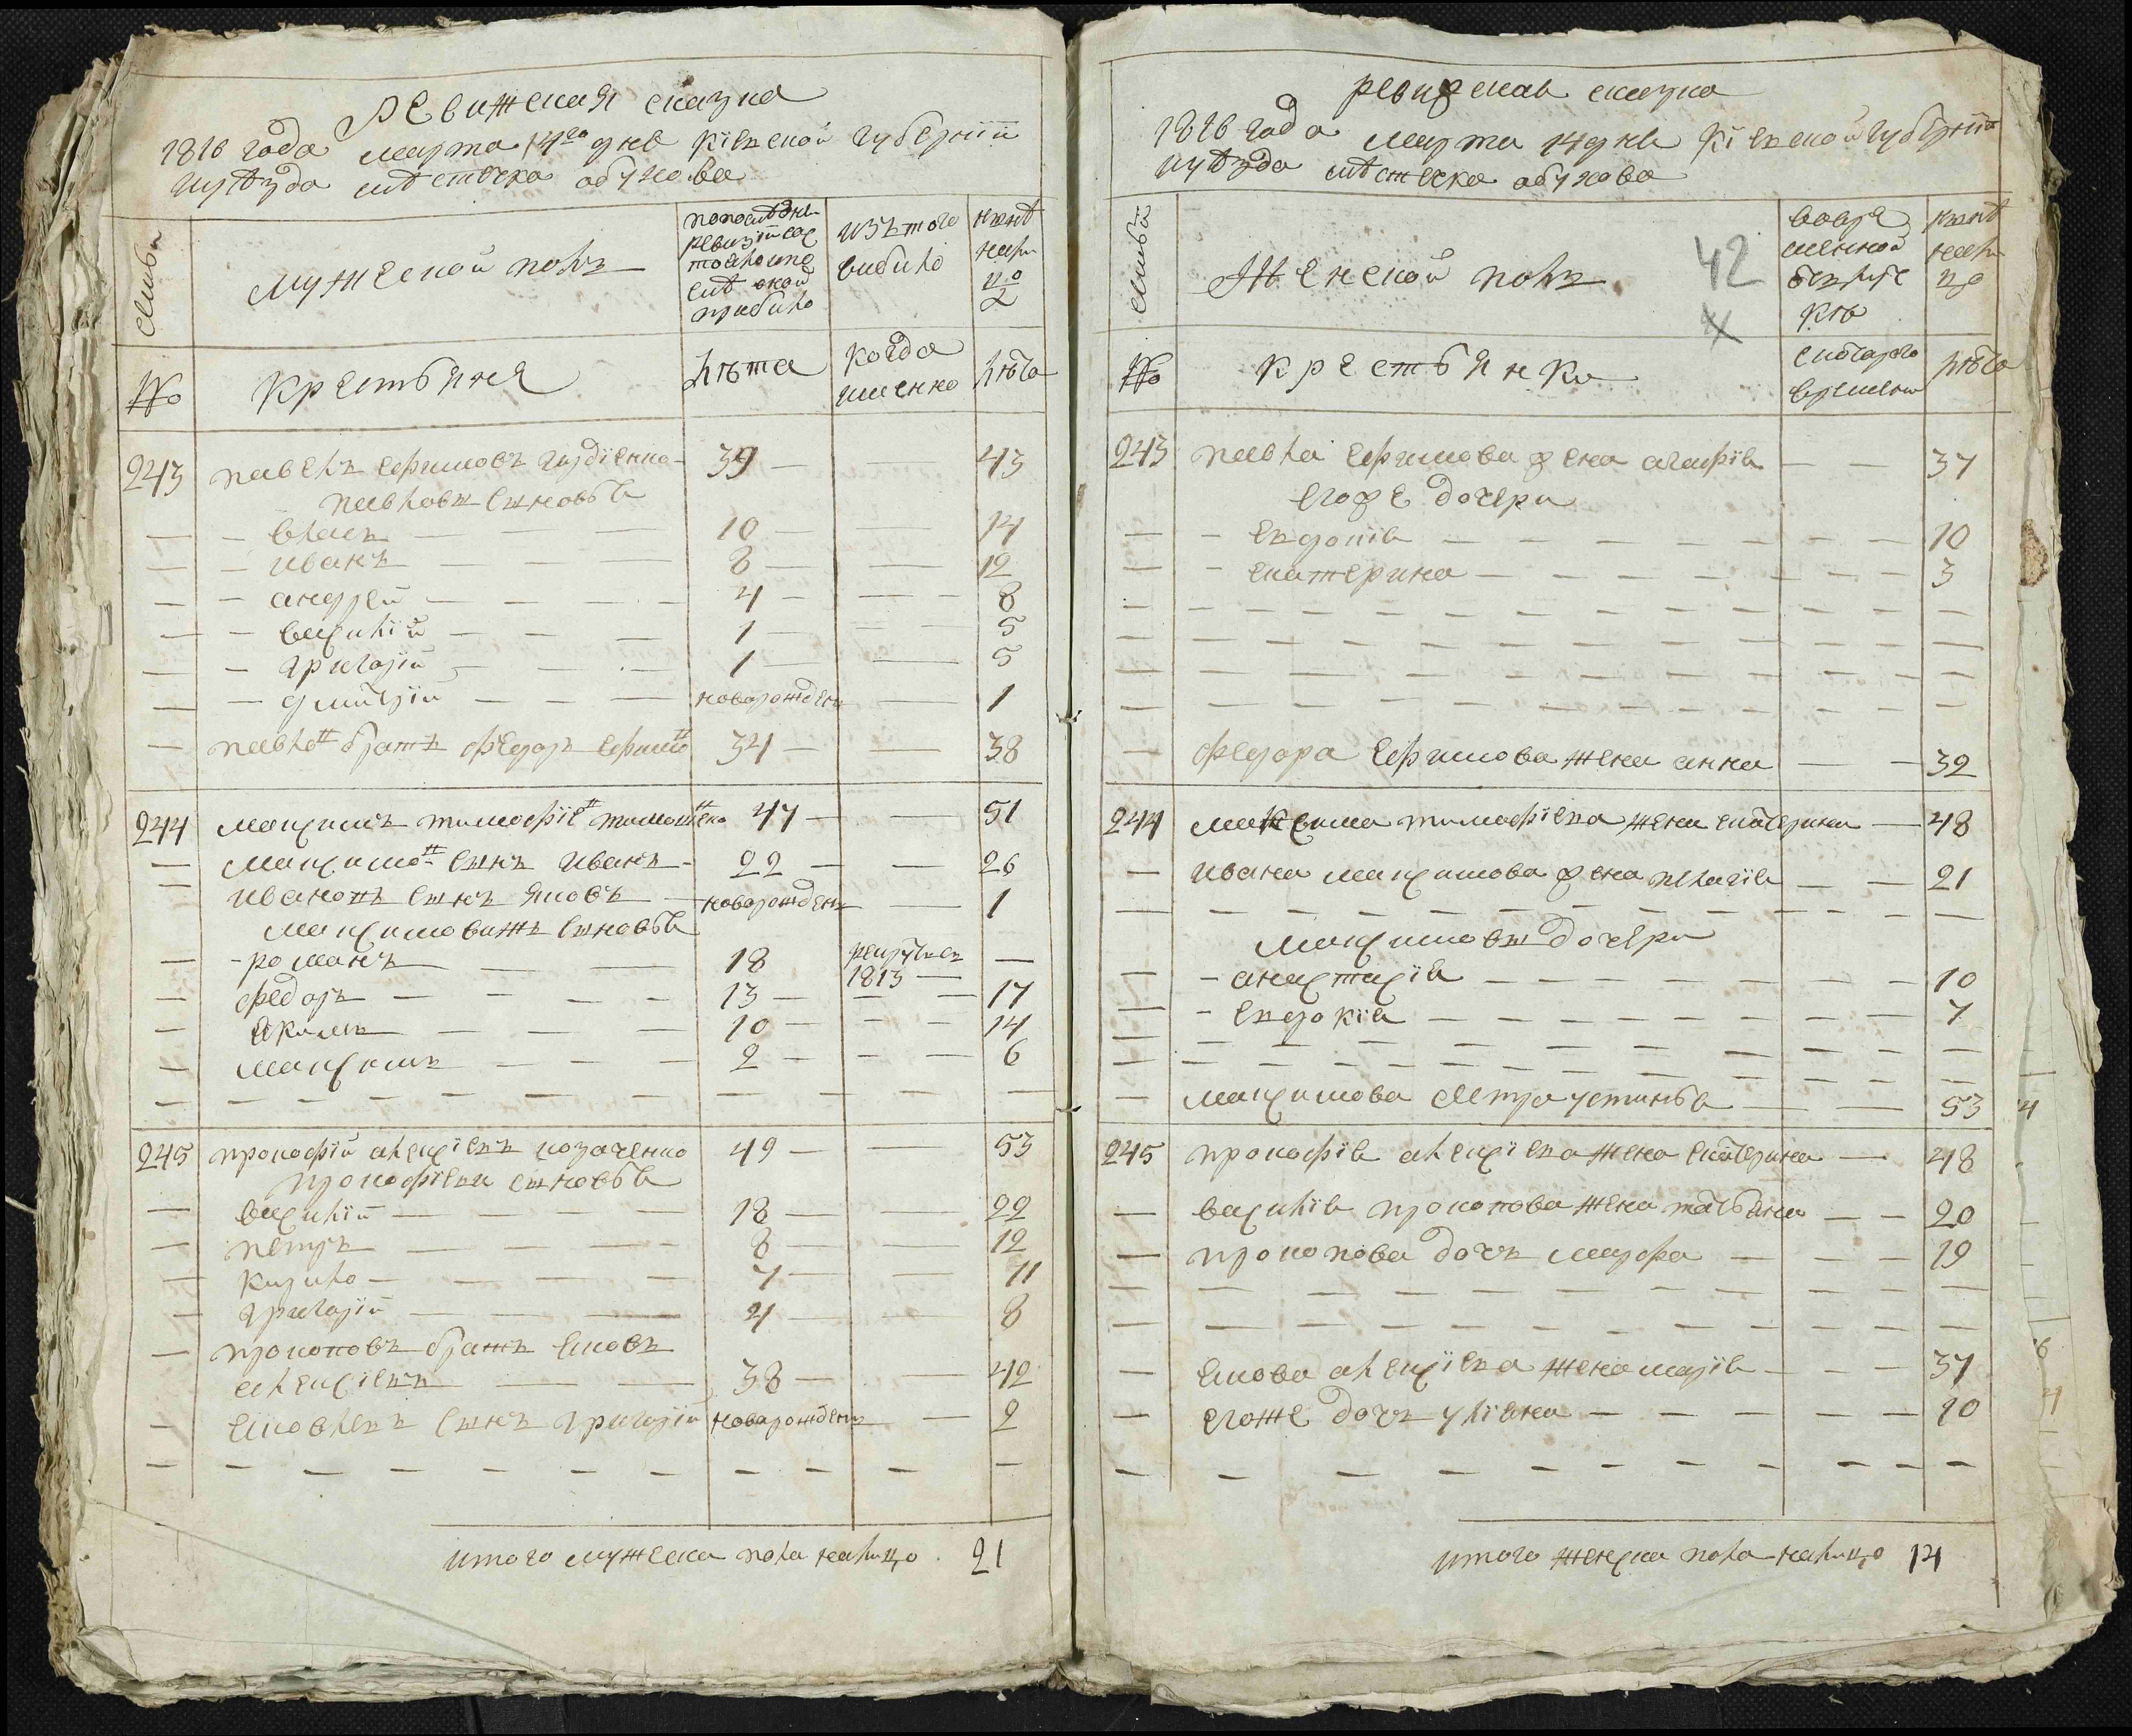 Ревижская сказка
1816 года марта 14го дня Кіевской губерніи
и уѣзда мѣстечка обухова
Семьи
мужеской полъ
по последне
ревизіи сос
тояло и по
слѣ оной
прибыло
изъ того
выбило
нынѣ
нали
цо
№
Крестьяня
лѣта
когда
именно
лѣта
243 павелъ ефимовъ 39 — — 43
павловы сыновья
— - власъ — 10 — — 14
— - иванъ — 8 — — 12
— - андрей — 4 — — 8
— - василій — 1 — — 5
— - григорій — 1 — — 5
— - дмитрій — новорожденъ — 1
— павлов братъ федоръ ефимов 34 — — 38
244 максимъ тимофіев тимошенко 47 — — 51
— максимов сынъ иванъ 22 — — 26
— ивановъ сынъ яковъ новорожденъ — 1
максимовы жъ сыновья
— - романъ — 18 рекрутъ въ 1813 —
— федоръ — 13 — — 17
— якимъ — 10 — — 14
— максимъ — 2 — — 6
245 прокофій алексіевъ козаченко 49 — — 53
прокофіевы сыновья
— василій — 18 — — 22
— петръ — 8 — — 12
— кирило — 7 — — 11
— григорій — 4 — — 8
— прокоповъ братъ яковъ
алексіевъ — 38 — — 42
— яковлевъ сынъ григорій новорожденъ — 2
итого мужеска пола налицо 21
ревижская сказка
1816 года марта 14 дня Кіевской губерніи
и уѣзда мѣстечка обухова
Семьи
Женской полъ
42
х
во вре
менной
отлуч
кѣ
нынѣ
нали
цо
№
крестьянки
с которого
времени
лѣта
243 павла ефимова жена агафія — — 37
его же дочери
— - евдокія — 10
— - екатерина — 3
— федора ефимова жена анна — — 32
244 максима тимофіева жена екатерина — 48
— ивана максимова жена пелагія — — 21
максимовы дочери
— - анастасія — 10
— - евдокія — 7
— максимова сестра устинья — — 53
245 прокофія алексіева жена екатерина — 48
— василія прокопова жена татьяна — — 20
— прокопова дочь марфа — 19
— якова алексіева жена марія — — 37
— его же дочь уліяна — 10
итого женска пола налицо 14